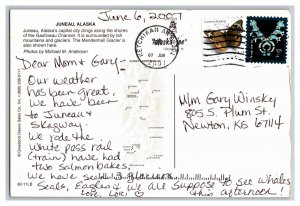 June 6, 2007
JUNEAU, ALASKA
Juneau, Alaska's capital city clings along the shores
of the Gastineau Channel. It is surrounded by tall
mountains and glaciers. The Mendenhall Glacier is
also shown here.
Photos by Michael M. Anderson
Dear Mom & Gary-
Our weather
has been great.
We have been
to Juneau &
Skagway.
We rode the
White pass rail
(train) have had
two salmon bakes.
We have seen 3 glaciers
Seals, Eagles & we are suppose to see whales
this afternoon!
Love, Lori
M/m Gary Winskey
805 S. Plum St.
Newton, KS 67114
KETCHIKAN AK
07 JUN
2007